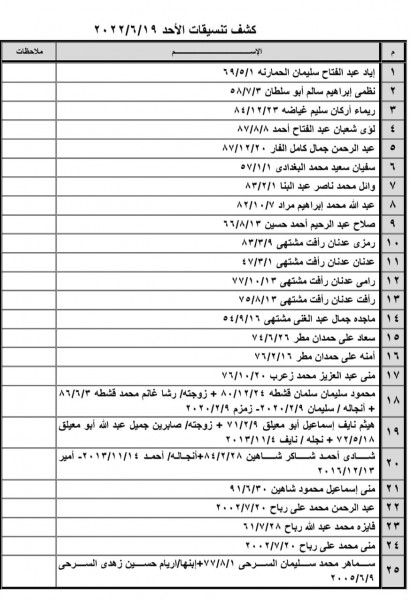 كشف تنسيقات الأحد ٢٠٢٢/٦/١٩
م الإســـــم ملاحظات
١ إياد عبد الفتاح سليمان الحمارنه ٦٩/٥/١
٢ نظمى إبراهيم سالم أبو سلطان ٥٨/٧/٣
٣ ريماء أركان سليم غياضه ٨٤/١٢/٢٣
٤ لؤى شعبان عبد الفتاح أحمد ٨٧/٨/٨
٥ عبد الرحمن جمال كامل الفار ٨٧/١٢/٢٠
٦ سفيان سعيد محمد البغدادى ٥٧/١/١
٧ وائل محمد ناصر عبد البنا ٨٣/٢/١
٨ عبد الله محمد إبراهيم مراد ٨٢/١٠/٧
٩ صلاح عبد الرحيم أحمد حسين ٦٦/٨/١٣
١٠ رمزى عدنان رأفت مشتهى ٨٣/٣/٩
١١ عدنان عدنان رأفت مشتهى ٤٧/٣/١
١٢ رامى عدنان رأفت مشتهى ٧٧/١٠/١٣
١٣ رأفت عدنان رأفت مشتهى ٧٥/٨/١٣
١٤ ماجده جمال عبد الغنى مشتهى ٥٤/٩/١٦
١٥ سعاد على حمدان مطر ٧٤/٦/٢٦
١٦ أمنه على حمدان مطر ٧٦/٢/١٦
١٧ منى عبد العزيز محمد زعرب ٧٦/١٠/٢٠
١٨ محمود سليمان سلمان قشطه ٨٠/١٢/٢٤ + زوجته/ رشا غانم محمد قشطه ٨٦/٦/٣
+ أنجاله / سليمان ٢٠٢٠/٢/٩- زمزم ٢٠٢٠/٢/٩
١٩ هيثم نايف إسماعيل أبو معيلق ٧١/٢/٩ + زوجته/ صابرين جميل عبد الله أبو معيلق
٧٢/٥/١٨ + نجله / نايف ٢٠١٣/١١/٤
٢٠ شـــادى أحمـد شـــاكر شـــاهين ٨٤/٢/٢٨+أنجالـه/ أحمـد ٢٠١٣/١١/١٤- أمير
٢٠١٦/١٢/١٣
٢١ منى إسماعيل محمود شاهين ٩١/٦/٣٠
٢٢ عبد الرحمن محمد على رباح ٢٠٠٢/٧/٢٠
٢٣ فايزه محمد عبد الله رباح ٦١/٧/٢٨
٢٤ منى محمد على رباح ٢٠٠٢/٧/٢٠
٢٥ ســماهر محمد ســليمان السـرحى ٧٧/٨/١+إبنها/اريام حســين زهدى السـرحى
٢٠٠٥/٦/٩